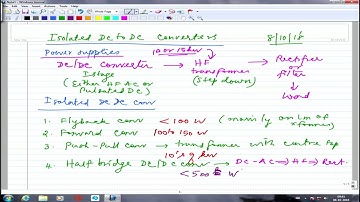 Isolated DC to DC Converters 8/10/18
Power supplies 10 or 15 kHz
DC/DC Converter → HF transformer → Rectifier or filter
I stage (step down)
(Either HF AC or Pulsated DC) → Load
Isolated DC DC Conv
1. Flyback Conv < 100 W (mainly on Lm of xformer)
2. Forward Conv 100 to 150 W
3. Push-Pull Conv → transformer with centre tap
10's of kW
4. Half bridge DC/DC Conv → DC-AC → HF → Rect.
< 500 W